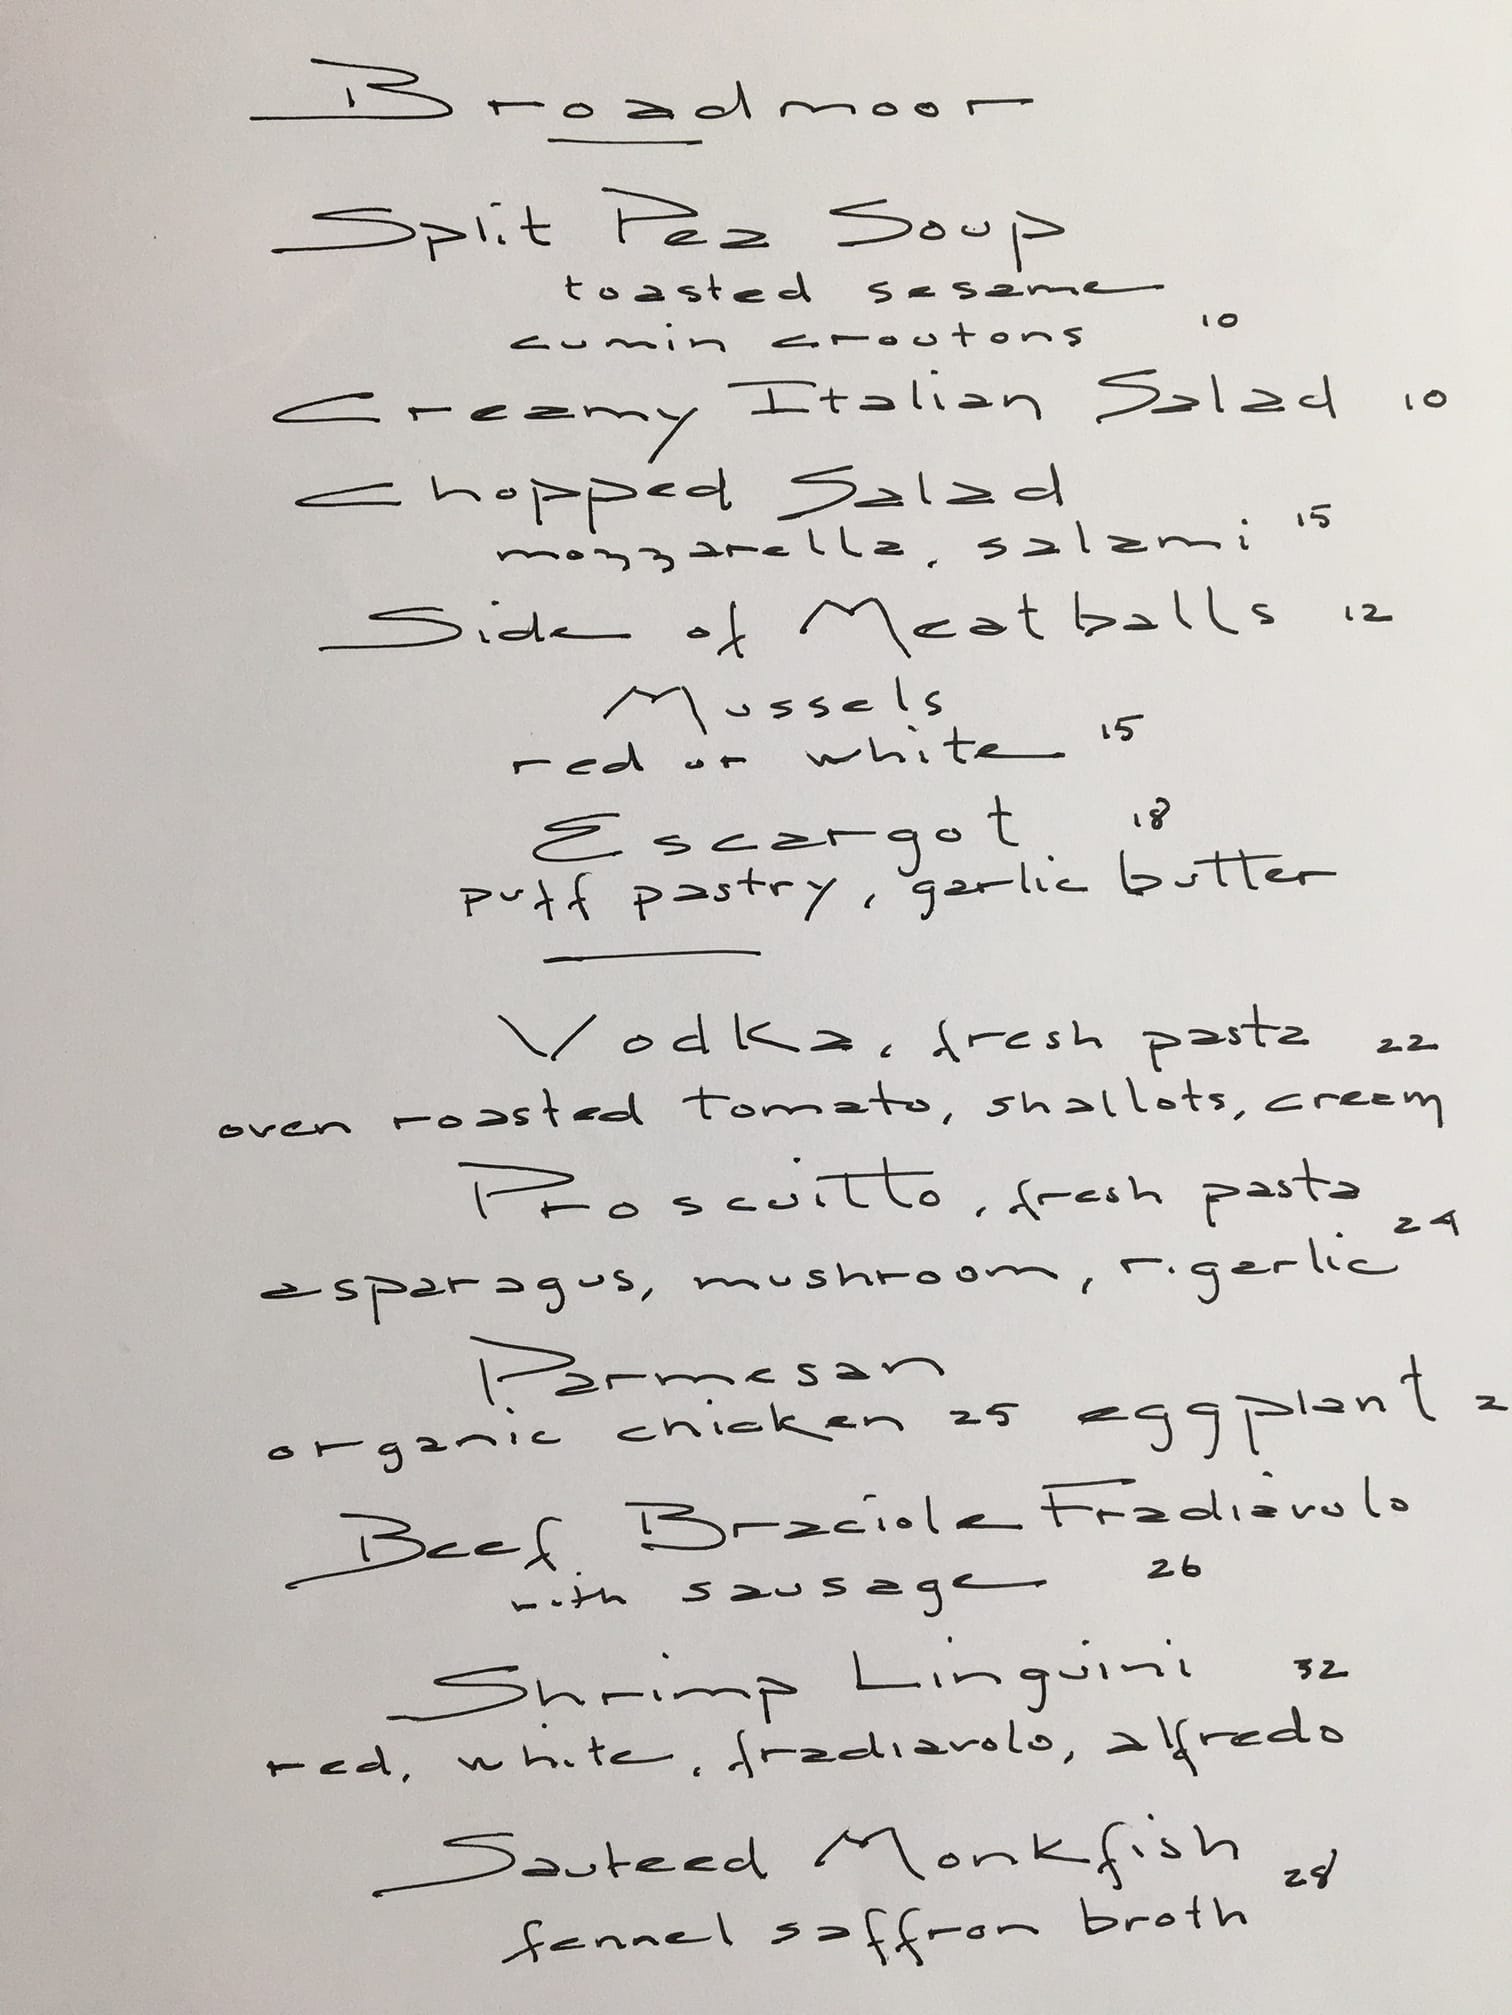 Broadmoor
Split Pea Soup
toasted sesame
cumin croutons 10
Creamy Italian Salad 10
Chopped Salad
mozzarella, salami 15
Side of Meatballs 12
Mussels
red or white 15
Escargot 18
puff pastry, garlic butter
Vodka, fresh pasta 22
oven roasted tomato, shallots, cream
Proscuitto, fresh pasta
asparagus, mushroom, r. garlic 24
Parmesan
organic chicken 25 eggplant 2
Beef Braciole Fradiavolo
with sausage 26
Shrimp Linguini 32
red, white, fradiavolo, alfredo
Sauteed Monkfish
fennel saffron broth 28